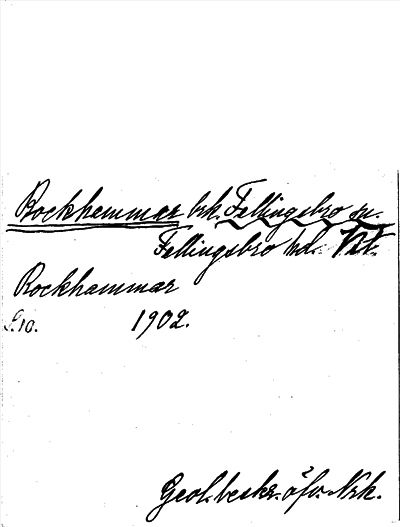 Rockhammar brk. Fellingsbro sn.
Fellingsbro hd. Vstm.
Rockhammar
S. 10. 1902.
Geol. beskr. öfv. Nrk.